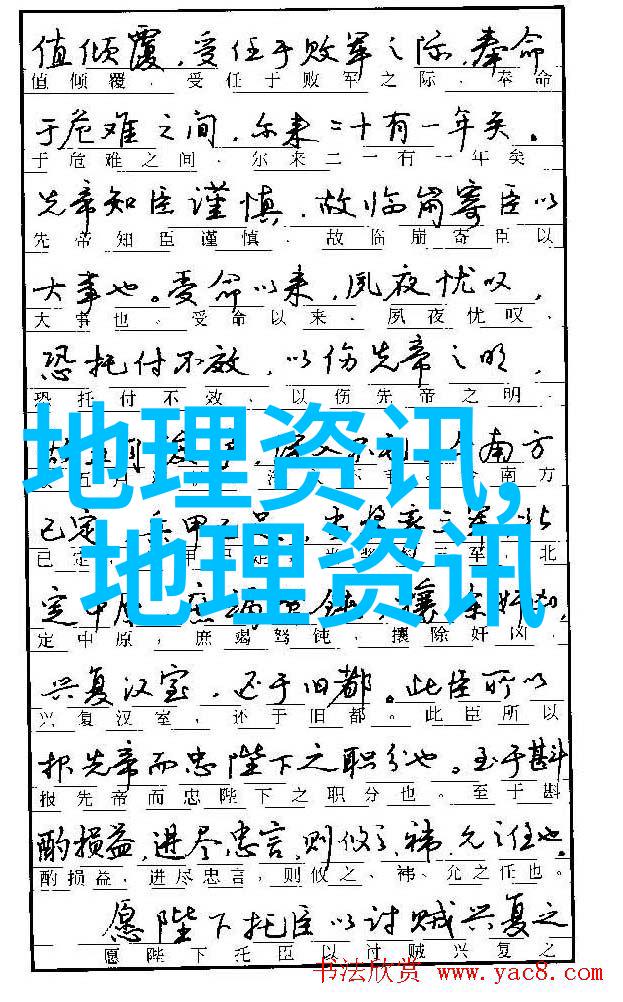 值倾覆，受任于败军之际，奉命
值倾覆，受任于败军之际，奉命
于危难之间，尔来二十有一年矣。
于危难之间，尔来二一有一年矣
先帝知臣谨慎，故临崩寄臣以
先帝知臣谨慎，故临崩寄臣以
大事也。受命以来，夙夜忧叹，
大事也。受命以来，夙夜忧叹，
恐托付不效，以伤先帝之明，
恐托付不效，以伤先帝之明，
南方
南方
地理资讯,
已定
已定
北
地理资讯
定中原
定中原，庶竭驽钝，攘除奸凶，
兴复汉室，还于旧都。此臣所以
兴复汉室，还于旧都。此臣所以
报先帝而忠陛下之职分也。至于斟
报先帝而忠陛下之职分也。至于斟
酌损益，进尽忠言，则攸之、祎、允之任也。
酌损益，进尽忠言，则攸之、祎、允之任也。
愿陛下托臣以讨贼兴复之
愿陛下托臣以讨贼兴复之
书法欣赏 www.yac8.com